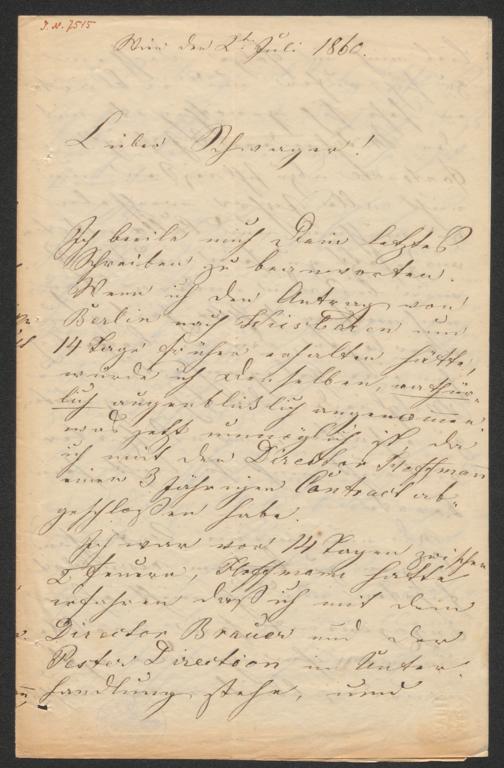 J. N. 7515
Wien den 2t Juli 1860.
Lieber Schwager!
Ich beeile mich Dein letztes
Schreiben zu beanworten.
Wenn ich den Antrag von
Berlin nach Wiesbaden um
14 Tage früher erhalten hätte,
würde ich denselben, natür-
lich augenbliklich angenommen
was jetzt unmöglich ist, da
ich mit den Director Hoffmann
einen 3 Jährigen Contract ab-
geschloßen habe.
Ich war vor 14 Tagen zwischen
2 Feuern, Hoffmann hatte
erfahren daß ich mit dem
Director Brauer und der
Pester Direction in Unter-
handlung stehe, und